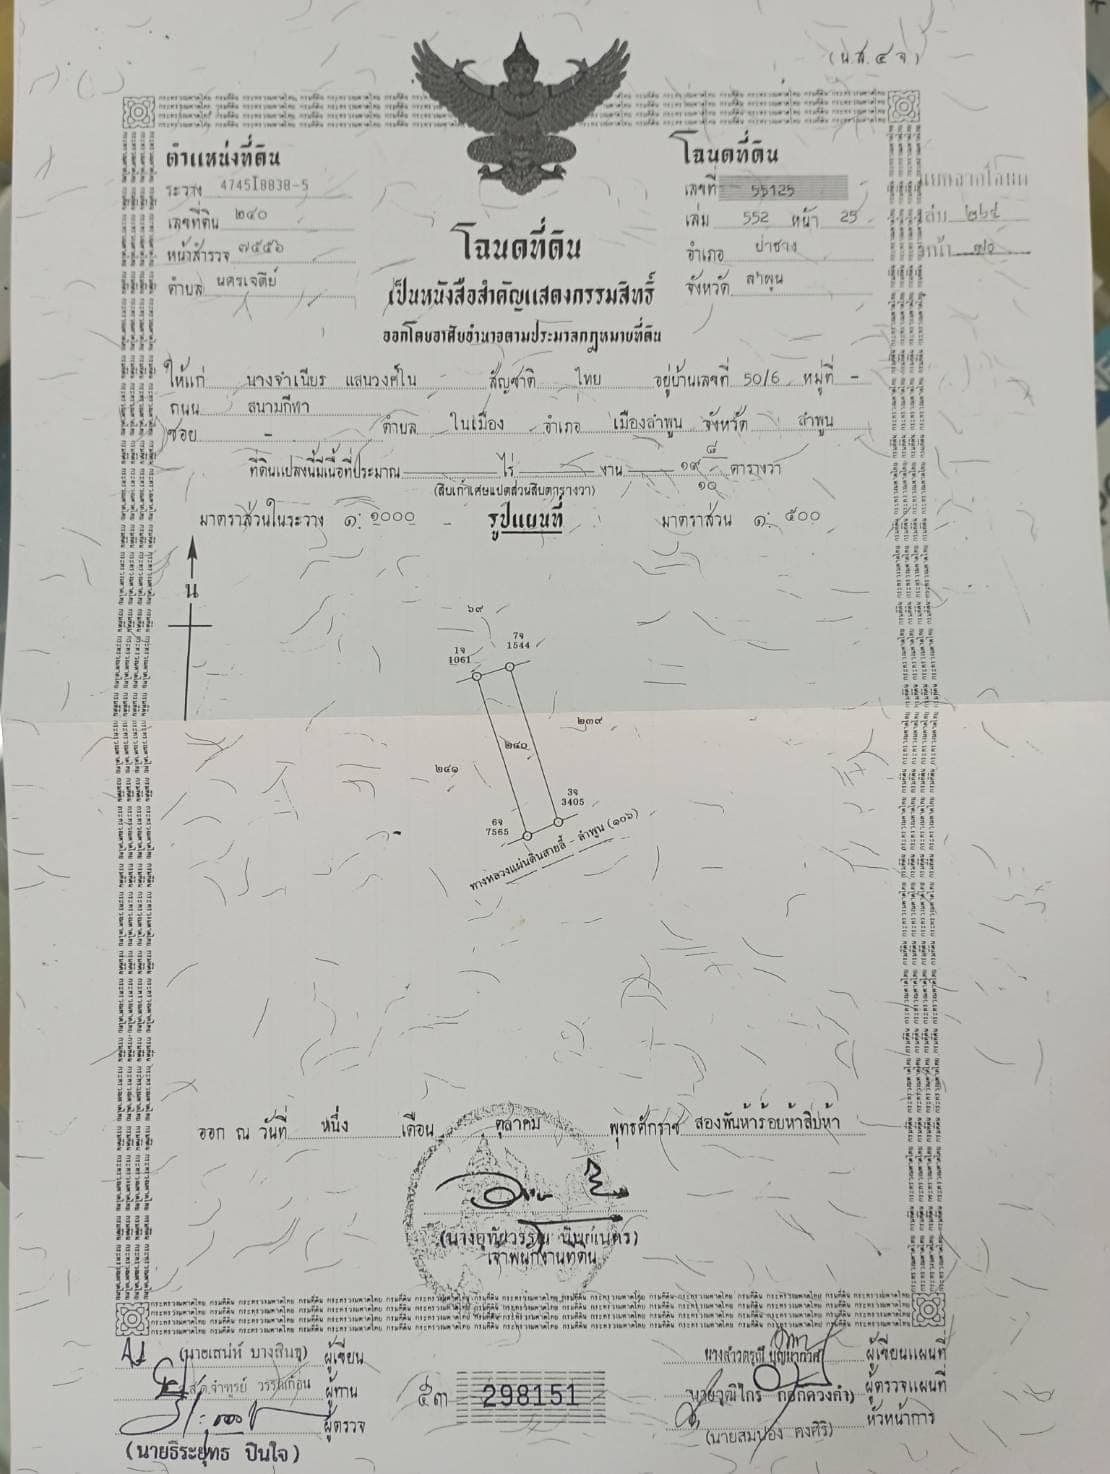 (น.ส. ๔ จ)
ตำแหน่งที่ดิน
ระวาง 4745I8838-5
เลขที่ดิน ๒๔๐
หน้าสำรวจ ๗๕๕๖
ตำบล นครเจดีย์
โฉนดที่ดิน
เลขที่ 55125
เล่ม 552 หน้า 25
อำเภอ ป่าซาง
จังหวัด ลำพูน
โฉนดที่ดิน
เป็นหนังสือสำคัญแสดงกรรมสิทธิ์
ออกโดยอาศัยอำนาจตามประมวลกฎหมายที่ดิน
ให้แก่ นางจำเนียร แสนวงค์ใน สัญชาติ ไทย อยู่บ้านเลขที่ 50/6 หมู่ที่ -
ถนน สนามกีฬา
ซอย - ตำบล ในเมือง อำเภอ เมืองลำพูน จังหวัด ลำพูน
ที่ดินแปลงนี้มีเนื้อที่ประมาณ ไร่ งาน ๑๙ ๘/๑๐ ตารางวา
(สิบเก้าเศษแปดส่วนสิบตารางวา)
มาตราส่วนในระวาง ๑: ๑๐๐๐ รูปแผนที่ มาตราส่วน ๑: ๕๐๐
น
๖๙
7จ
1544
1จ
1061
๒๓๙
๒๔๐
๒๔๑
3จ
3405
6จ
7565
ทางหลวงแผ่นดินสายลี้ - ลำพูน (๑๐๖)
ออก ณ วันที่ หนึ่ง เดือน ตุลาคม พุทธศักราช สองพันห้าร้อยห้าสิบห้า
เจ้าพนักงานที่ดิน
(นายเสน่ห์ บางสินธุ) ผู้เขียน
ผู้ทาน
ผู้ตรวจ
(นายธีระยุทธ ปินใจ)
๕๓ 298151
ผู้เขียนแผนที่
ผู้ตรวจแผนที่
หัวหน้าการ
(นายสมปอง คงศิริ)